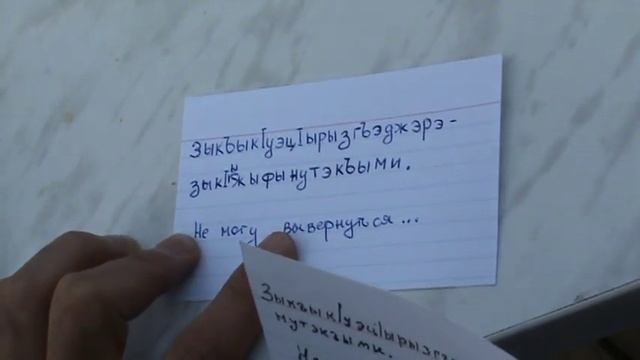 зыкъыкІуэцІырызгъэджэрэ-
зыкІыжыфынутэкъыми.
Не могу вывернуться...
ЗыкъыкІуэцІырызгъ
нутэкъыми.
Не